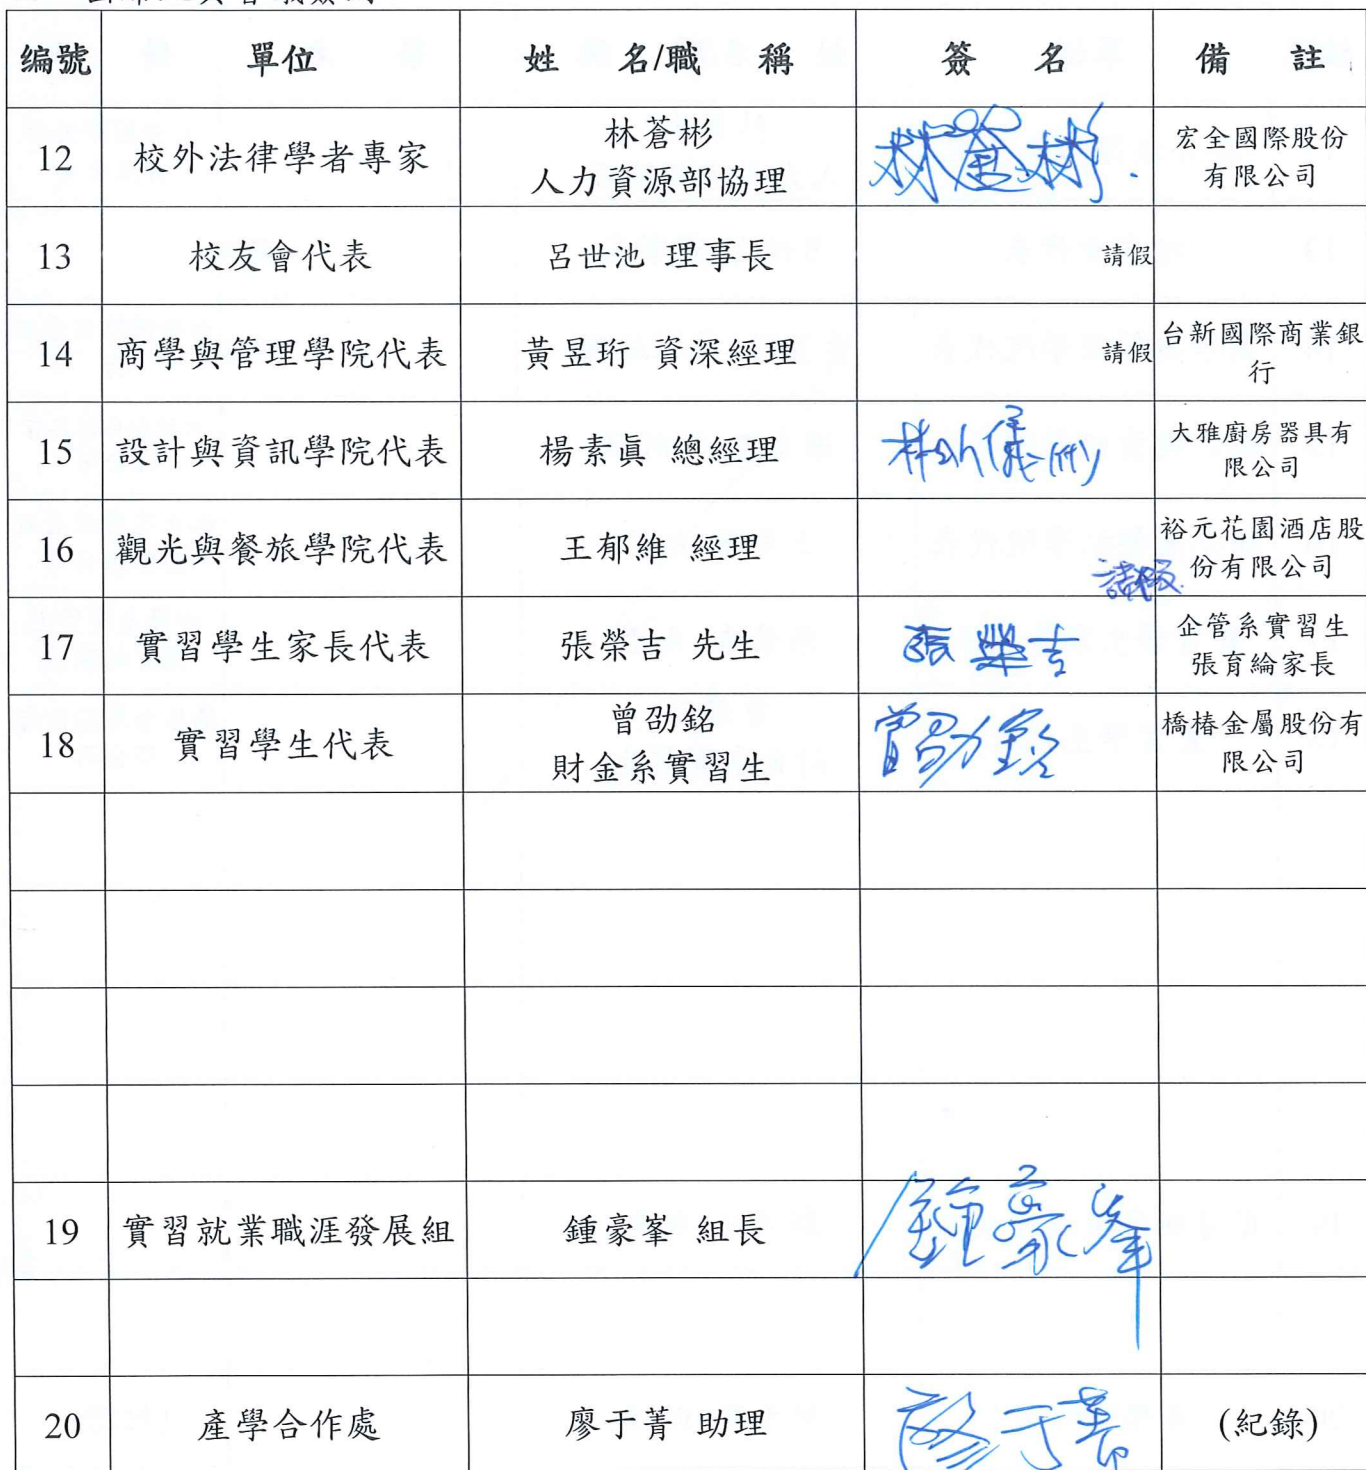 編號 單位 姓 名/職 稱 簽 名 備 註
12 校外法律學者專家 林蒼彬 林蒼彬 宏全國際股份
人力資源部協理 有限公司
13 校友會代表 呂世池 理事長 請假
14 商學與管理學院代表 黃昱珩 資深經理 請假 台新國際商業銀
行
15 設計與資訊學院代表 楊素眞 總經理 大雅廚房器具有
限公司
16 觀光與餐旅學院代表 王郁維 經理 請假 裕元花園酒店股
份有限公司
17 實習學生家長代表 張榮吉 先生 張榮吉 企管系實習生
張育綸家長
18 實習學生代表 曾劭銘 曾劭銘 橋椿金屬股份有
財金系實習生 限公司
19 實習就業職涯發展組 鍾豪峯 組長 鍾豪峯
20 產學合作處 廖于菁 助理 廖于菁 (紀錄)